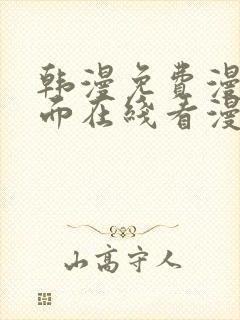 韩漫免费漫
而在线看漫
山高守人